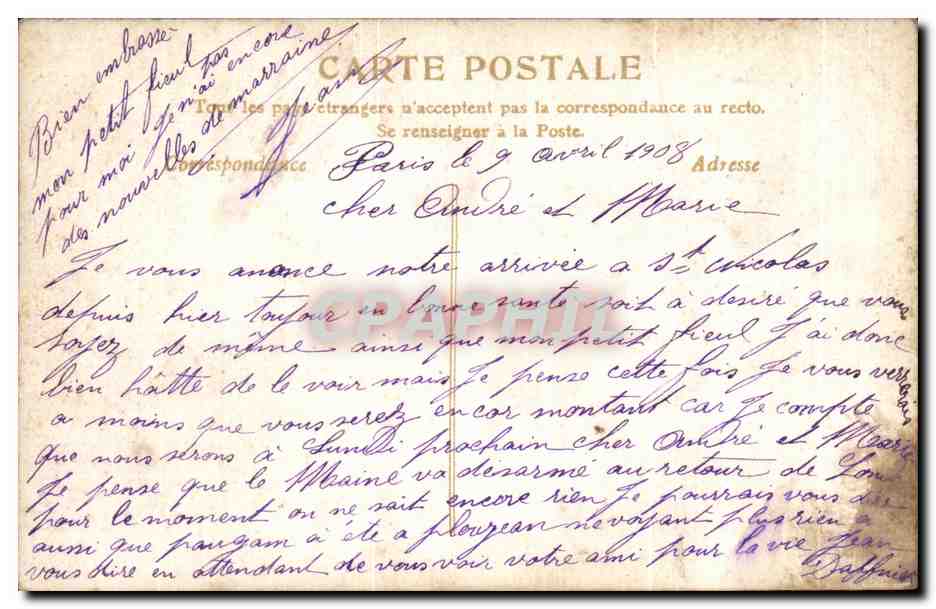 Bien embrassé
mon petit fieul
pour moi je n'ai pas encore
des nouvelles de marraine
Jean
CARTE POSTALE
Tous les pays étrangers n'acceptent pas la correspondance au recto.
Se renseigner à la Poste.
Correspondance
Adresse
Paris le 9 avril 1908
cher André et Marie
Je vous anonce notre arrivée a St Nicolas
depuis hier toujour en bonne sante soit à desiré que vous
soyez de même ainsi que mon petit fieul J'ai donc
bien hâtté de le voir mais Je pense cette fois Je vous verrerais
a moins que vous serez encor montant car Je compte
que nous serons à Lundi prochain cher André et Marie
Je pense que le Maine va désarmé au retour de
pour le moment on ne sait encore rien Je pourrais vous dire
aussi que paugam à été a plouzean ne voyant plus rien a
vous dire en attendant de vous voir votre ami pour la vie Jean
CPAPHIL